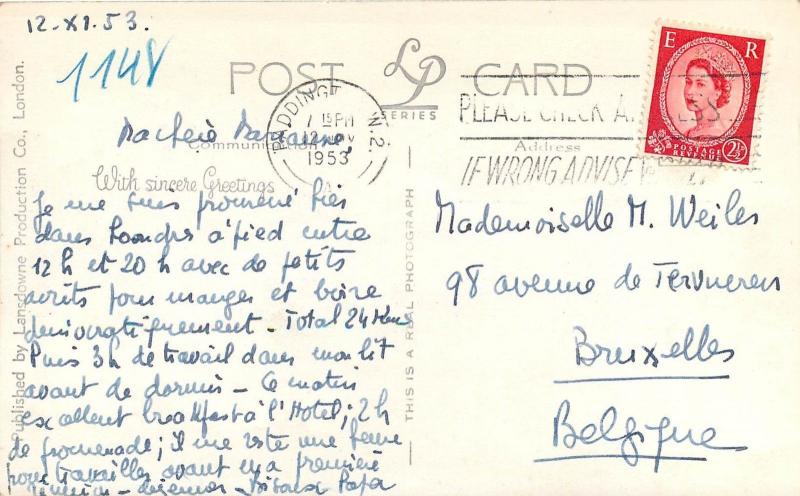 12-XI.53.
1148
POST LP CARD
SERIES
PADDINGTON W.2.
7 15 PM
12 NOV
1953
PLEASE CHECK ADDRESS
IF WRONG ADVISE
E R
POSTAGE REVENUE
2½
Ma chère Marianne,
Communication
Address
With sincere Greetings
Je me suis promené hier
dans Londres à pied entre
12 h et 20 h avec de petits
arrêts pour manger et boire
démocratiquement - Total 24 Kms
Puis 3h de travail dans mon lit
avant de dormir - Ce matin
excellent breakfast à l'Hotel; 2h
de promenade; il me reste une heure
pour travailler avant ma première
réunion - déjeuner - Papa
Published by Lansdowne Production Co., London.
THIS IS A REAL PHOTOGRAPH
Mademoiselle M. Weiler
98 avenue de Tervueren
Bruxelles
Belgique